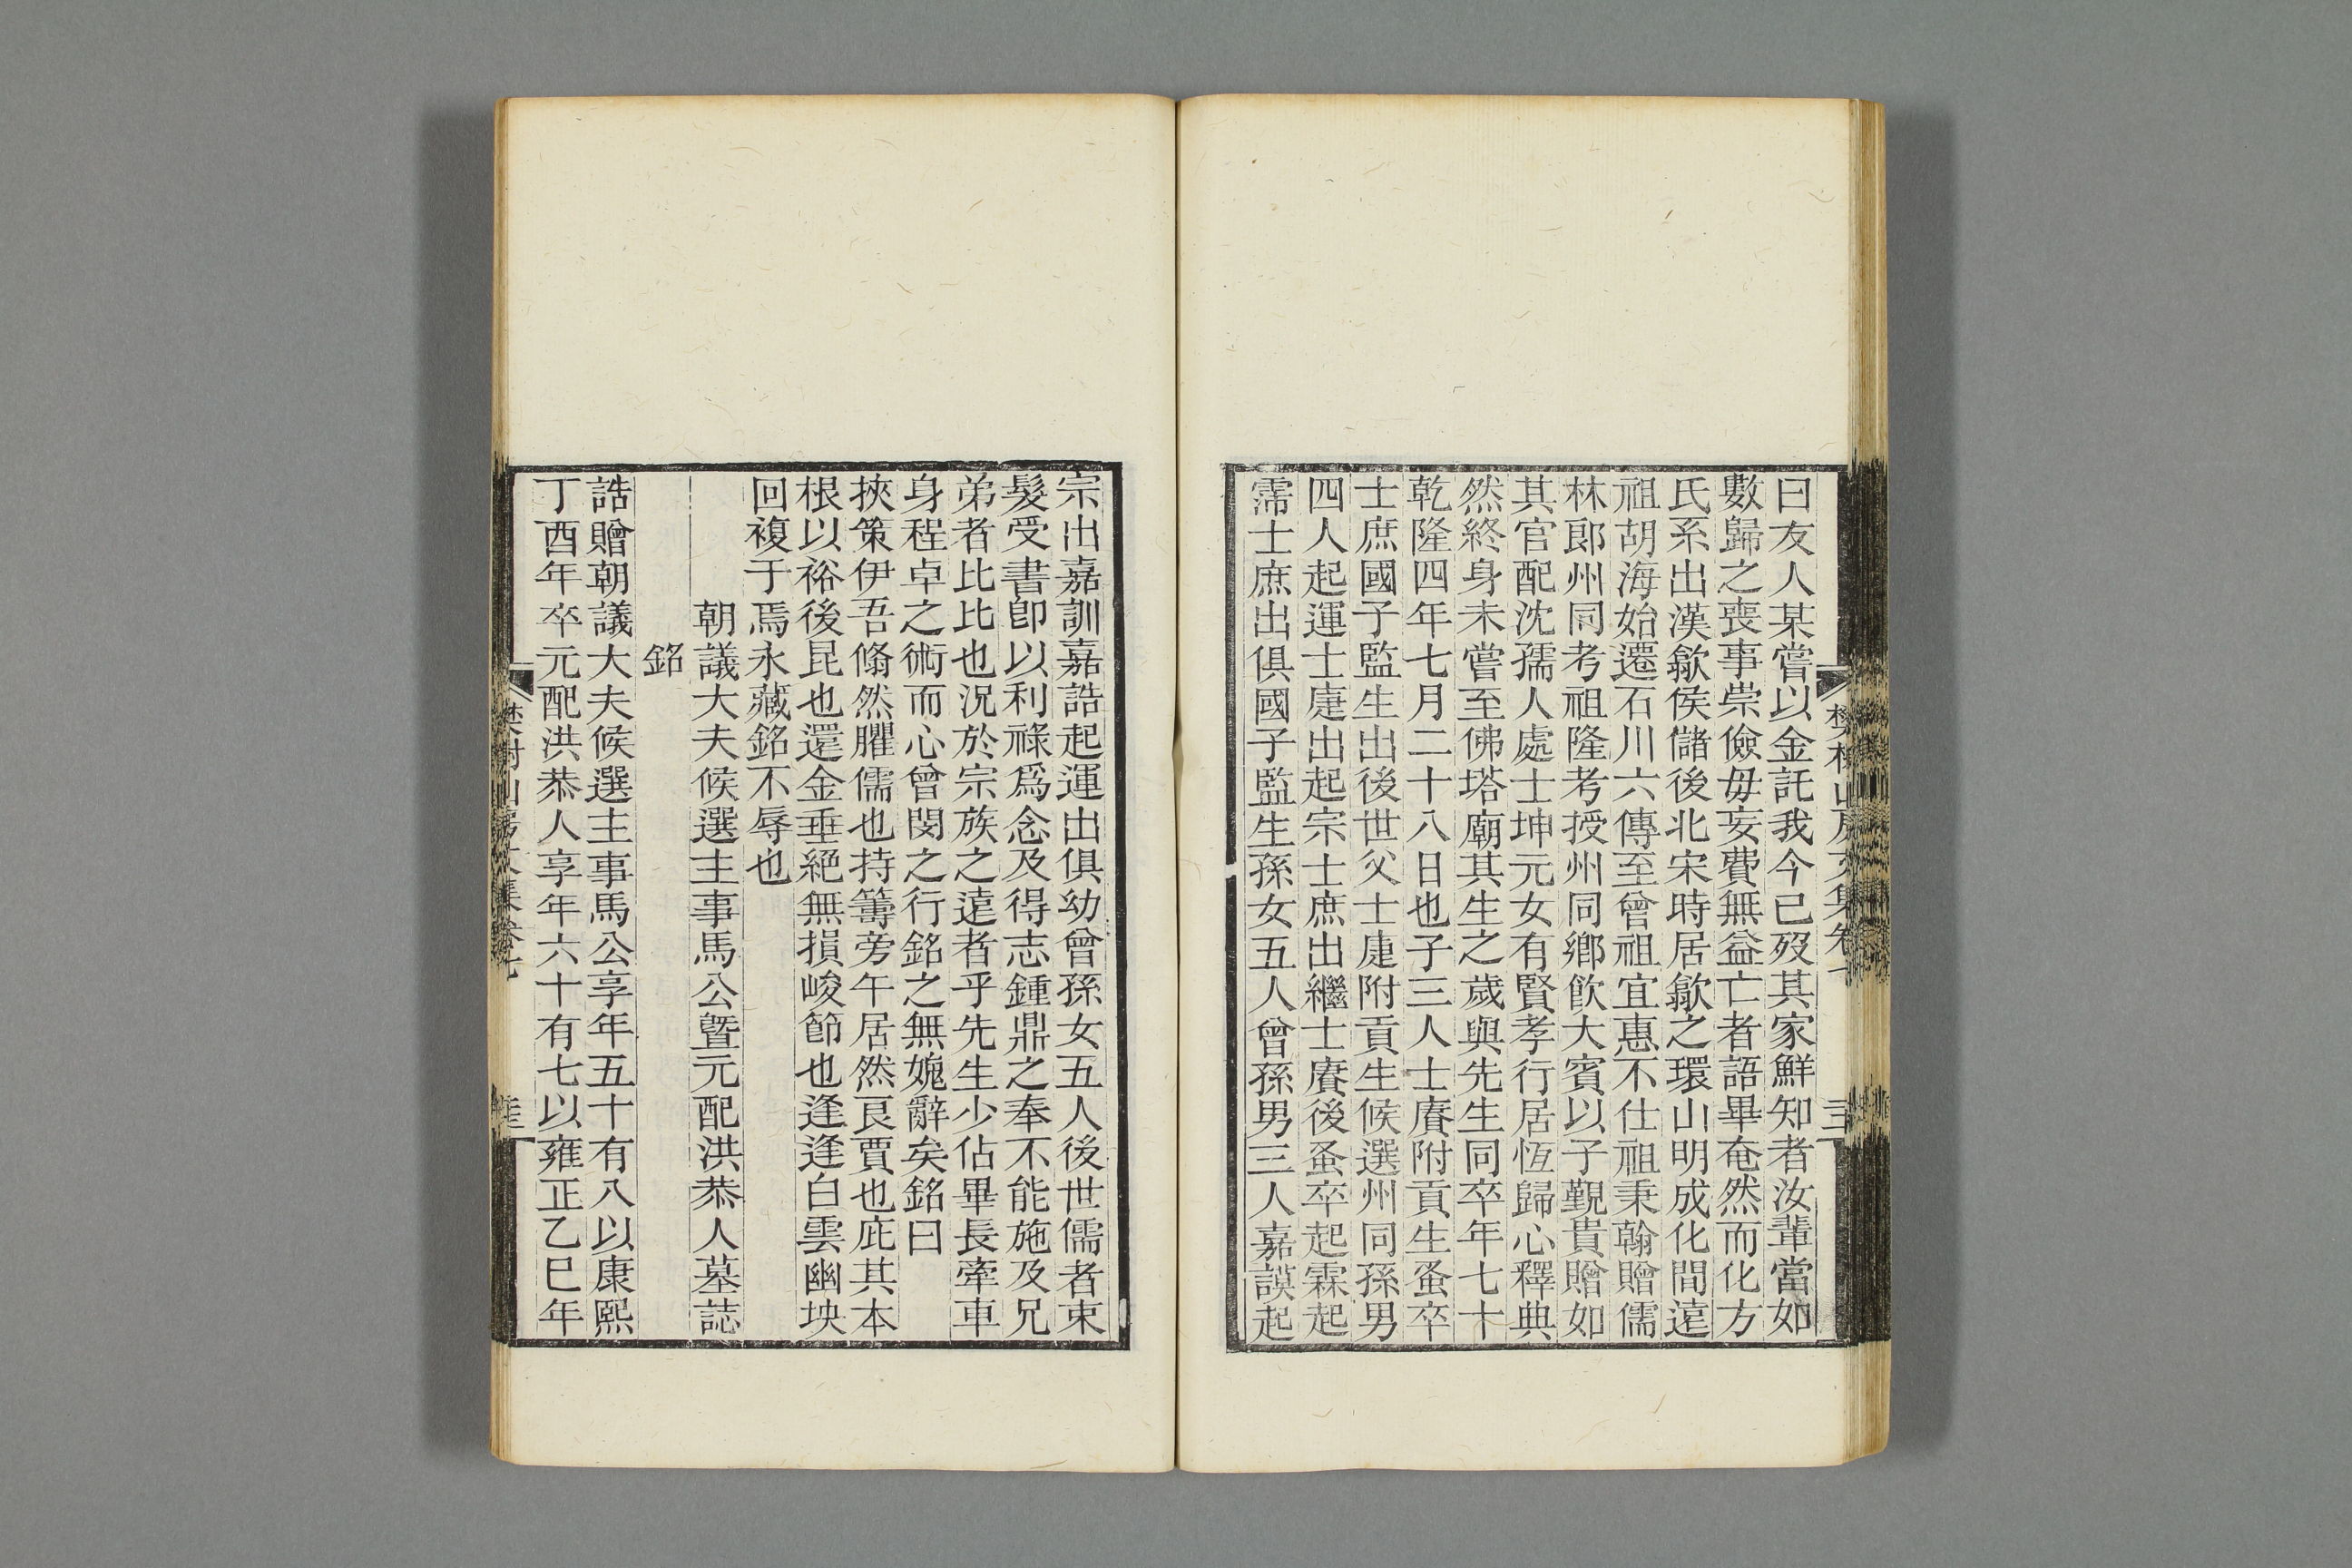 曰友人某嘗以金託我今已歿其家鮮知者汝輩當如
數歸之喪事崇儉毋妄費無益亡者語畢奄然而化方
氏系出漢歙侯儲後北宋時居歙之環山明成化間遠
祖胡海始遷石川六傳至曾祖宜惠不仕祖秉翰贈儒
林郎州同考祖隆考授州同鄉飲大賓以子觀貴贈如
其官配沈孺人處士坤元女有賢孝行居恆歸心釋典
然終身未嘗至佛塔廟其生之歲與先生同卒年七十
乾隆四年七月二十八日也子三人士賡附貢生蚤卒
士庶國子監生出後世父士疌附貢生候選州同孫男
四人起運士疌出起宗士庶出繼士賡後蚤卒起霖起
霈士庶出俱國子監生孫女五人曾孫男三人嘉謨起
宗出嘉訓嘉誥起運出俱幼曾孫女五人後世儒者束
髮受書卽以利祿爲念及得志鍾鼎之奉不能施及兄
弟者比比也況於宗族之遠者乎先生少佔畢長牽車
身程卓之術而心曾閔之行銘之無媿辭矣銘曰
挾策伊吾翛然臞儒也持籌旁午居然良賈也庇其本
根以裕後昆也還金垂絕無損峻節也逢逢白雲幽坱
回複于焉永藏銘不辱也
朝議大夫候選主事馬公曁元配洪恭人墓誌
銘
誥贈朝議大夫候選主事馬公享年五十有八以康熙
丁酉年卒元配洪恭人享年六十有七以雍正乙巳年